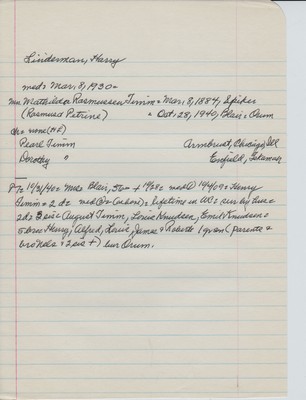 Linderman, Harry
md: Mar. 8, 1930=
nee Mathilda Rasmussen Timm = Mar. 8, 1884, Spiker
(Rasmus & Petrine) " Oct. 28, 1940, Blair = Orum
ch = none (HF)
Pearl Timm Armbrust, Chicago, Ill
Dorothy " Enfield, Tekamah
PT= 10/31/40= Mrs Blair, 1940= Henry
Timm = 2 ds = Lifetime in WC = sur by hus =
2 ds 3 sis = August Timm, Louis Knudsen, Emil Knudsen =
5 bros Henry, Alfred, Louie, James & Robert 1 gson (parents &
bro Nels & 2 sis +) bur Orum.